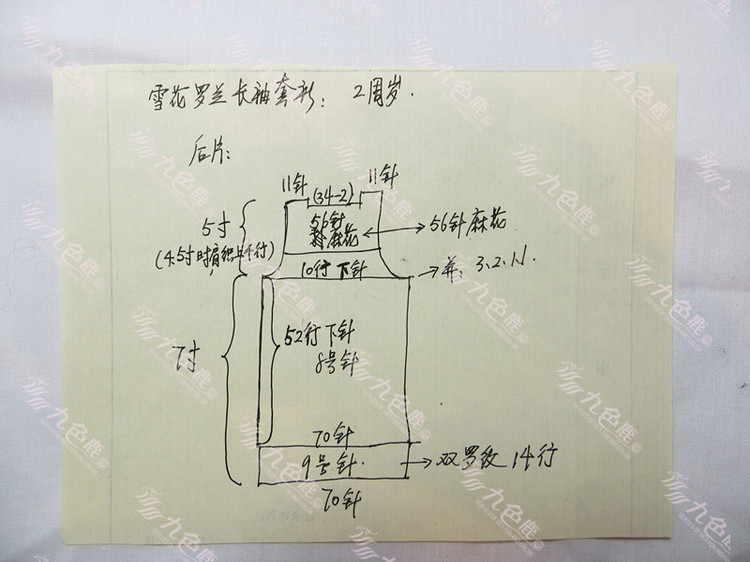 雪花罗兰长袖套衫: 2周岁.
后片:
11针
11针
(34-2)
5寸
56针
麻花
56针麻花
(4.5寸时肩织上4行)
10行下针
并: 3.2.1.1.
52行下针
8号针
7寸
70针
9号针.
双罗纹14行
70针
九色鹿